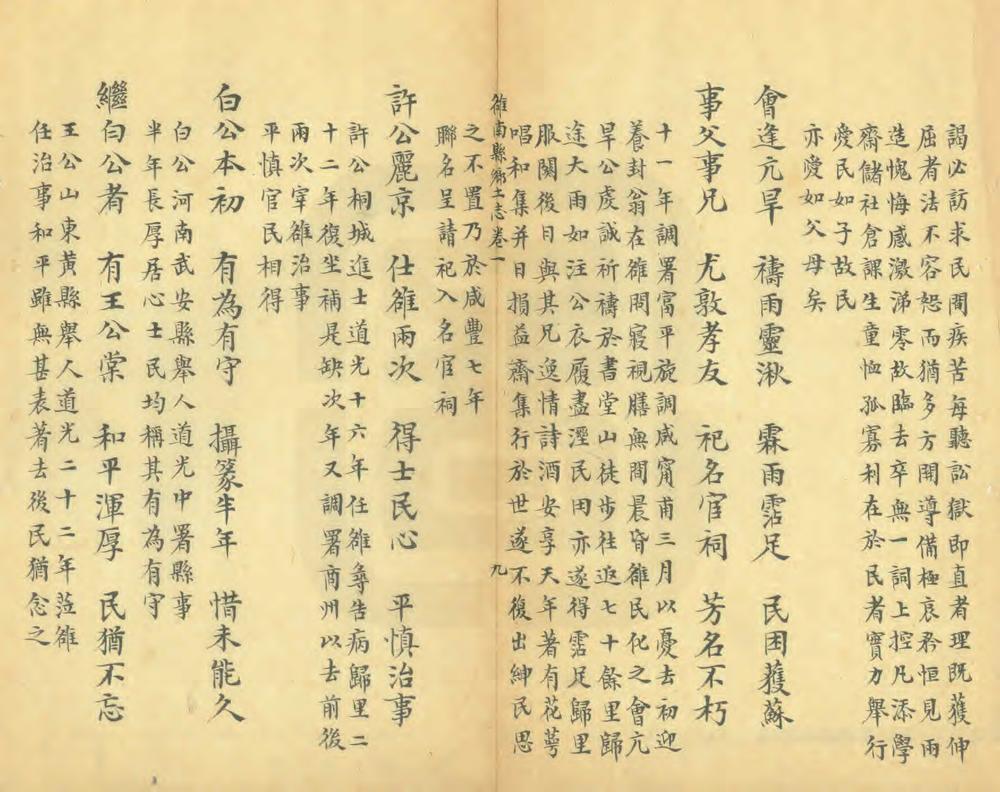 謁必訪求民間疾苦每聽訟獄即直者理既獲伸
屈者法不容恕而猶多方開導備極哀矜恒見兩
造愧悔感激涕零故臨去卒無一詞上控凡添學
齋儲社倉課生童恤孤寡利在於民者寶力舉行
愛民如子故民
亦愛如父母矣
會逢亢旱　禱雨靈湫　霖雨霑足　民困獲蘇
事父事兄　尤敦孝友　祀名宦祠　芳名不朽
十一年調署富平旋調咸甯甫三月以憂去初迎
養封翁在雒問寢視膳無間晨昏雒民化之會亢
旱公虔誠祈禱於書堂山徒步往返七十餘里歸
途大雨如注公衣履盡溼民田亦遂得霑足歸里
服闋後日與其兄逸情詩酒安享天年著有花萼
唱和集并日損益齋集行於世遂不復出紳民思
雒南縣鄉土志卷一　九
之不置乃於咸豐七年
聯名呈請祀入名宦祠
許公麗京　仕雒兩次　得士民心　平慎治事
許公桐城進士道光十六年任雒尋告病歸里二
十二年復坐補是缺次年又調署商州以去前後
兩次宰雒治事
平慎官民相得
白公本初　有為有守　攝篆半年　惜未能久
白公河南武安縣舉人道光中署縣事
半年長厚居心士民均稱其有為有守
繼白公者　有王公棠　和平渾厚　民猶不忘
王公山東黃縣舉人道光二十二年蒞雒
任治事和平雖無甚表著去後民猶念之